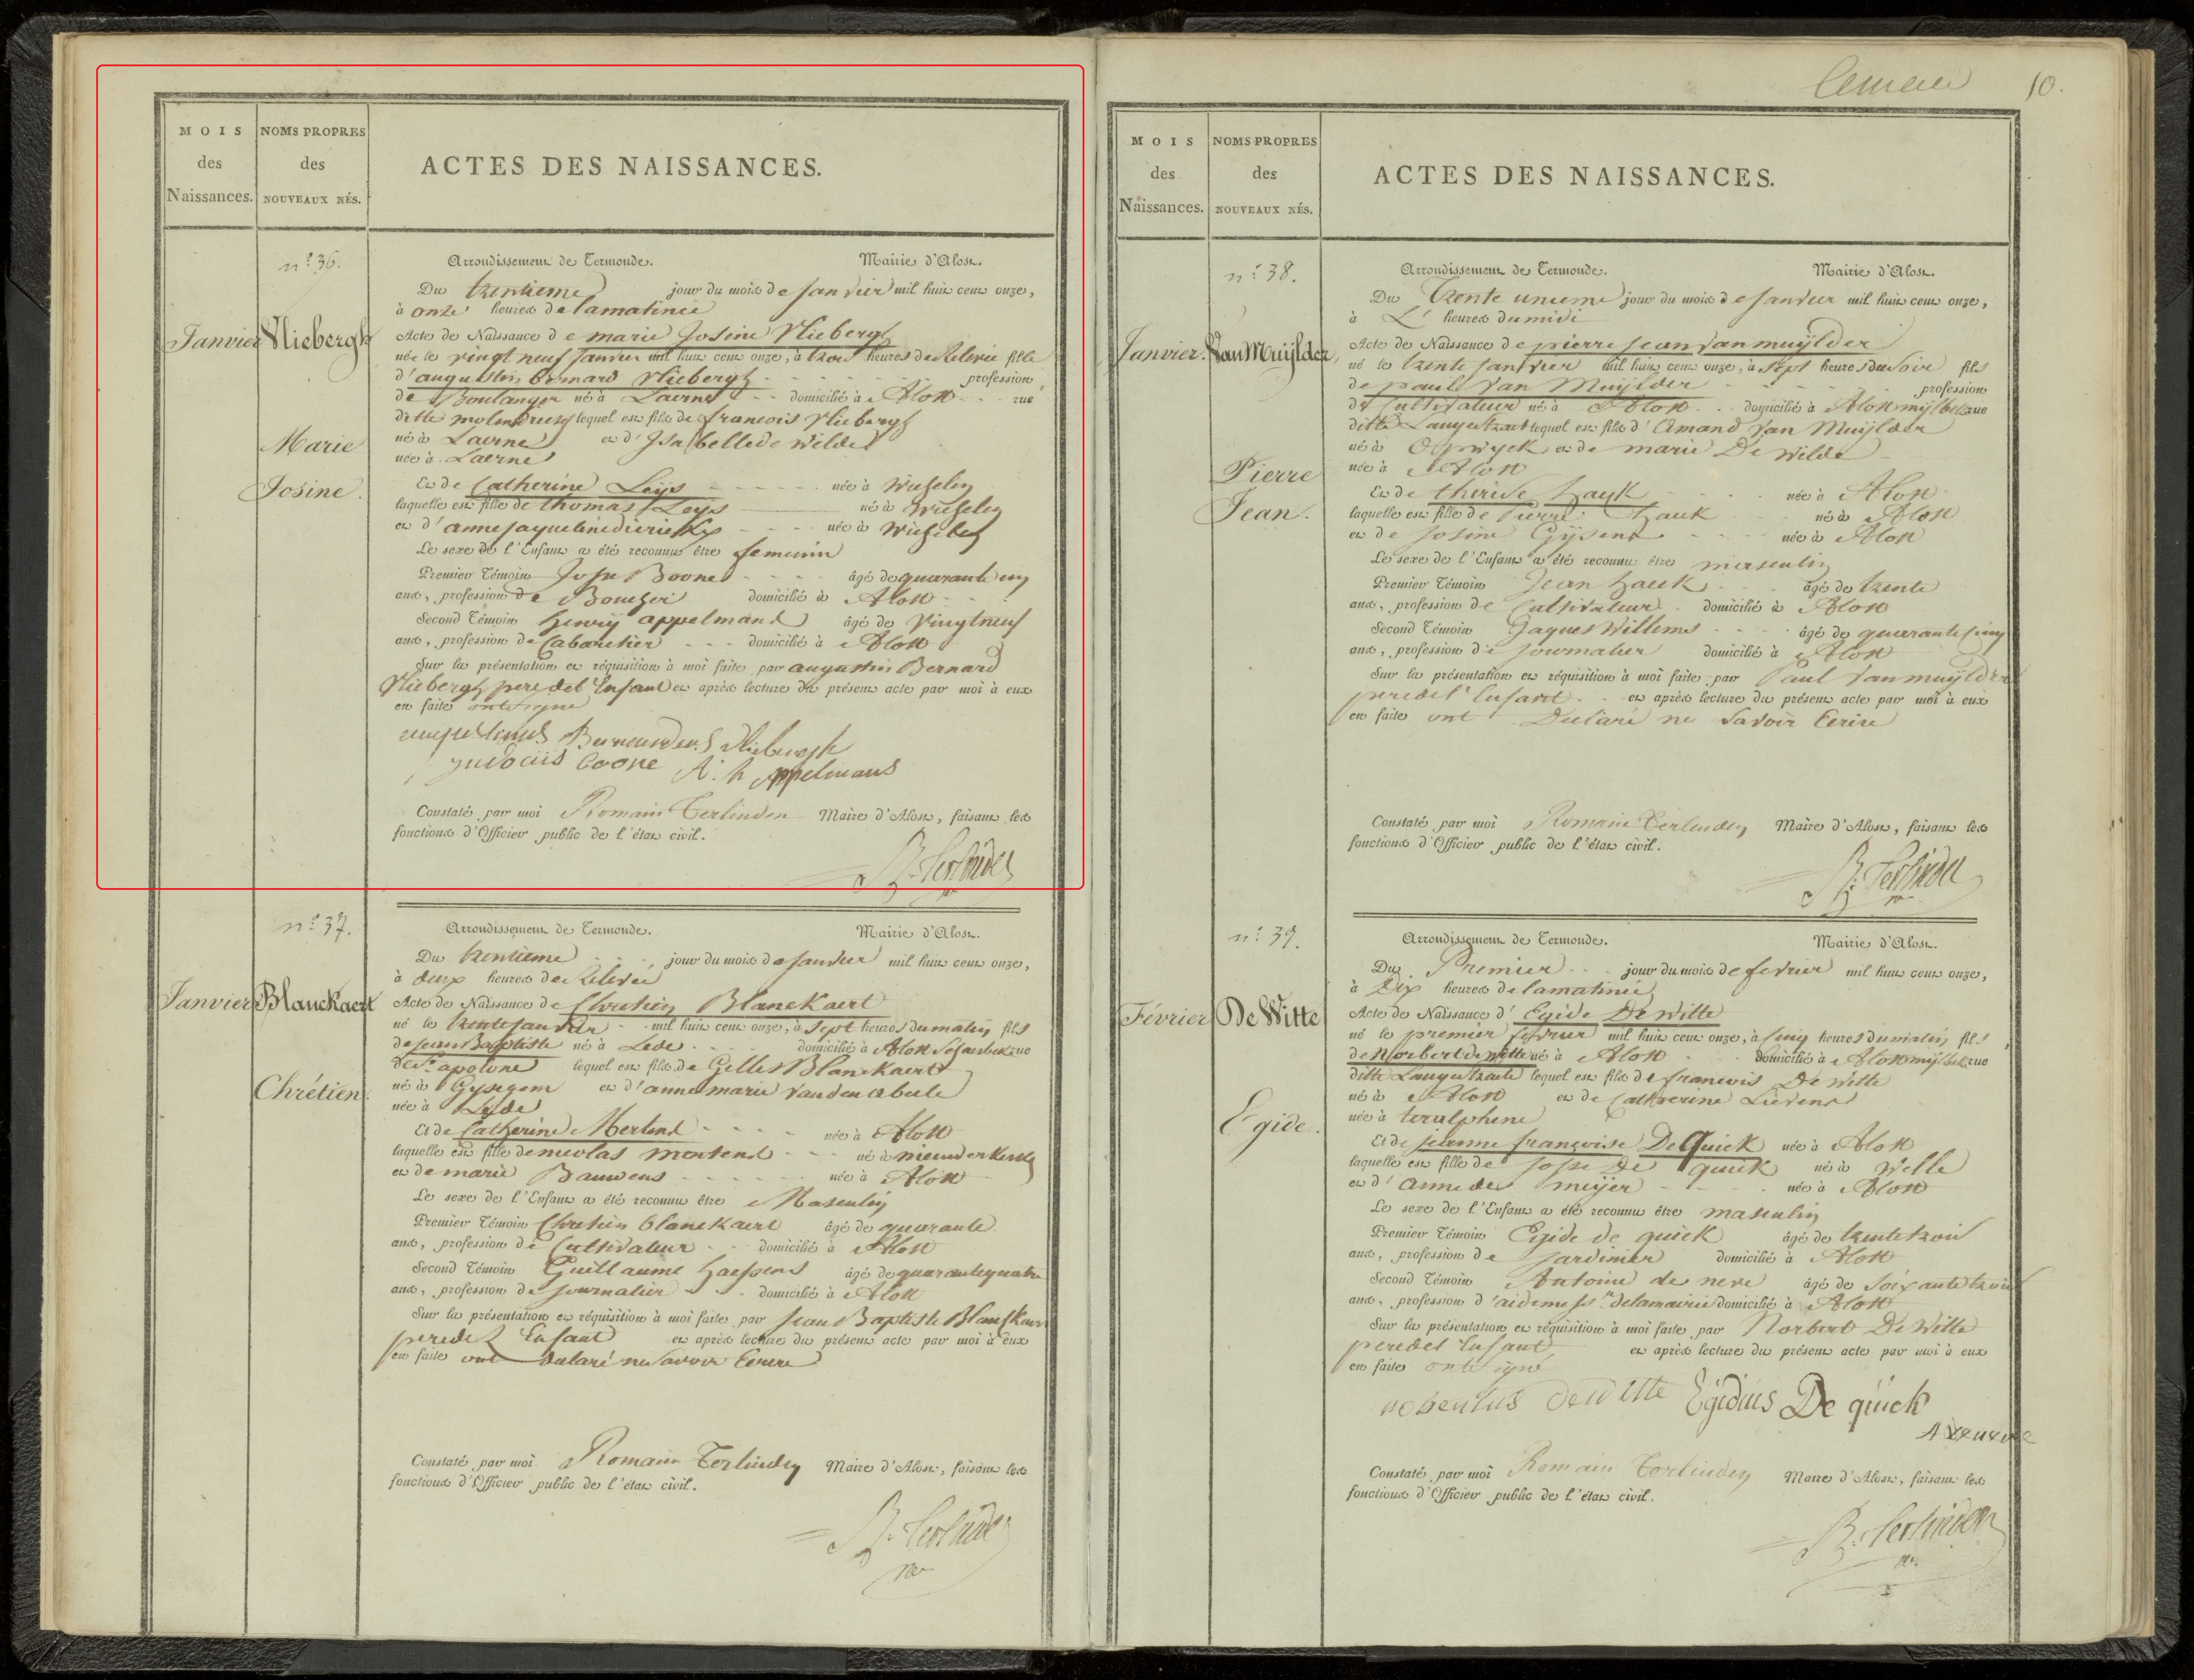 Cemeu
10.
MOIS
des
Naissances.
NOMS PROPRES
des
NOUVEAUX NÉS.
ACTES DES NAISSANCES.
n.º 36.
Janvier
Vliebergh
Marie
Josine.
Arrondissement de Termonde. Mairie d'Alost.
Du trentieme jour du mois de janvier mil huit cent onze,
à onze heures de la matinée
Acte de Naissance de marie Josine Vliebergh
née le vingt neuf janvier mil huit cent onze, à trois heures de Relevée fille
d'augustin bernard Vliebergh profession
de Boulanger né à Laerne domicilié à Alost rue
ditte lequel est fils de francois Vliebergh
né à Laerne et d'Isabelle de Wilde
née à Laerne
Et de Catherine Leys née à
laquelle est fille de thomas Leys né à
et d'anne jaqueline dierickx née à
Le sexe de l'Enfant a été reconnu être femenin
Premier Témoin Jose Boone âgé de quarante
ans, profession de domicilié à Alost
Second Témoin henrij appelmans âgé de Vingtneuf
ans, profession de Cabaretier domicilié à Alost
Sur la présentation et réquisition à moi faite par augustin Bernard
Vliebergh pere del Enfant et après lecture du présent acte par moi à eux
en faite ont signé
augustinus Bernardus Vliebergh
judocus boone A. h Appelmans
Constaté par moi Romain Terlinden Maire d'Alost, faisant les
fonctions d'Officier public de l'état civil.
R. Terlinden
n.º 37.
Janvier
Blanckaert
Chrétien.
Arrondissement de Termonde. Mairie d'Alost.
Du trentieme jour du mois de janvier mil huit cent onze,
à deux heures de Relevée
Acte de Naissance de Chretien Blanckaert
né le trente janvier mil huit cent onze, à sept heures du matin fils
de jean Baptiste né à Lede domicilié à Alost rue
de St. apolone lequel est fils de Gilles Blanckaert
né à Gysegem et d'anne marie vanden abeele
née à Lede
Et de Catherine Mertens née à Alost
laquelle est fille de nicolas mertens né à nieuderkerke
et de marie Bauwens née à Alost
Le sexe de l'Enfant a été reconnu être Masculin
Premier Témoin Chretien blanckaert âgé de quarante
ans, profession de Cultivateur domicilié à Alost
Second Témoin Guillaume haesens âgé de quarantequatre
ans, profession de journalier domicilié à Alost
Sur la présentation et réquisition à moi faite par jean Baptiste Blanckaert
pere de l Enfant et après lecture du présent acte par moi à eux
en faite ont declaré ne savoir Ecrire
Constaté par moi Romain Terlinden Maire d'Alost, faisant les
fonctions d'Officier public de l'état civil.
R. Terlinden
MOIS
des
Naissances.
NOMS PROPRES
des
NOUVEAUX NÉS.
ACTES DES NAISSANCES.
n.º 38.
Janvier.
Van Muÿlder,
Pierre
Jean.
Arrondissement de Termonde. Mairie d'Alost.
Du trente unieme jour du mois de janvier mil huit cent onze,
à L' heures du midi
Acte de Naissance de pierre jean Van muÿlder
né le trente janvier mil huit cent onze, à sept heures du soir fils
de paul Van Muÿlder profession
de Cultivateur né à Alost domicilié à Alost mijlbeke rue
ditte Langestraet lequel est fils d'Amand Van Muÿlder
né à Opwyck et de marie De Wilde
née à Alost
Et de therese hauk née à Alost
laquelle est fille de Pierre hauk né à Alost
et de Josine Gijsens née à Alost
Le sexe de l'Enfant a été reconnu être masculin
Premier Témoin Jean hauk âgé de trente
ans, profession de Cultivateur domicilié à Alost
Second Témoin Jaques Willems âgé de quarante cinq
ans, profession de journalier domicilié à Alost
Sur la présentation et réquisition à moi faite par Paul Van muÿlder
pere del Enfant et après lecture du présent acte par moi à eux
en faite ont Declaré ne Savoir Ecrire
Constaté par moi Romain Terlinden Maire d'Alost, faisant les
fonctions d'Officier public de l'état civil.
R. Terlinden
n.º 39.
Février
De Witte
Egide.
Arrondissement de Termonde. Mairie d'Alost.
Du Premier jour du mois de fevrier mil huit cent onze,
à Dix heures de la matinée
Acte de Naissance d'Egide De Witte
né le premier fevrier mil huit cent onze, à cinq heures du matin fils
de Norbert de witte né à Alost domicilié à Alost mijlbeke rue
ditte Langestraete lequel est fils de francois De Witte
né à Alost et de Catherine Lievens
née à teralphene
Et de jeanne françoise De Quick née à Alost
laquelle est fille de jose De quick né à Welle
et d'anne de meijer née à Alost
Le sexe de l'Enfant a été reconnu être masculin
Premier Témoin Egide de quick âgé de trentetrois
ans, profession de jardinier domicilié à Alost
Second Témoin Antoine de neve âgé de soixantetrois
ans, profession d' de la mairie domicilié à Alost
Sur la présentation et réquisition à moi faite par Norbert De Witte
pere del Enfant et après lecture du présent acte par moi à eux
en faite ont signé
norbertus De Witte Egidius De quick
A De neve
Constaté par moi Romain Terlinden Maire d'Alost, faisant les
fonctions d'Officier public de l'état civil.
R. Terlinden